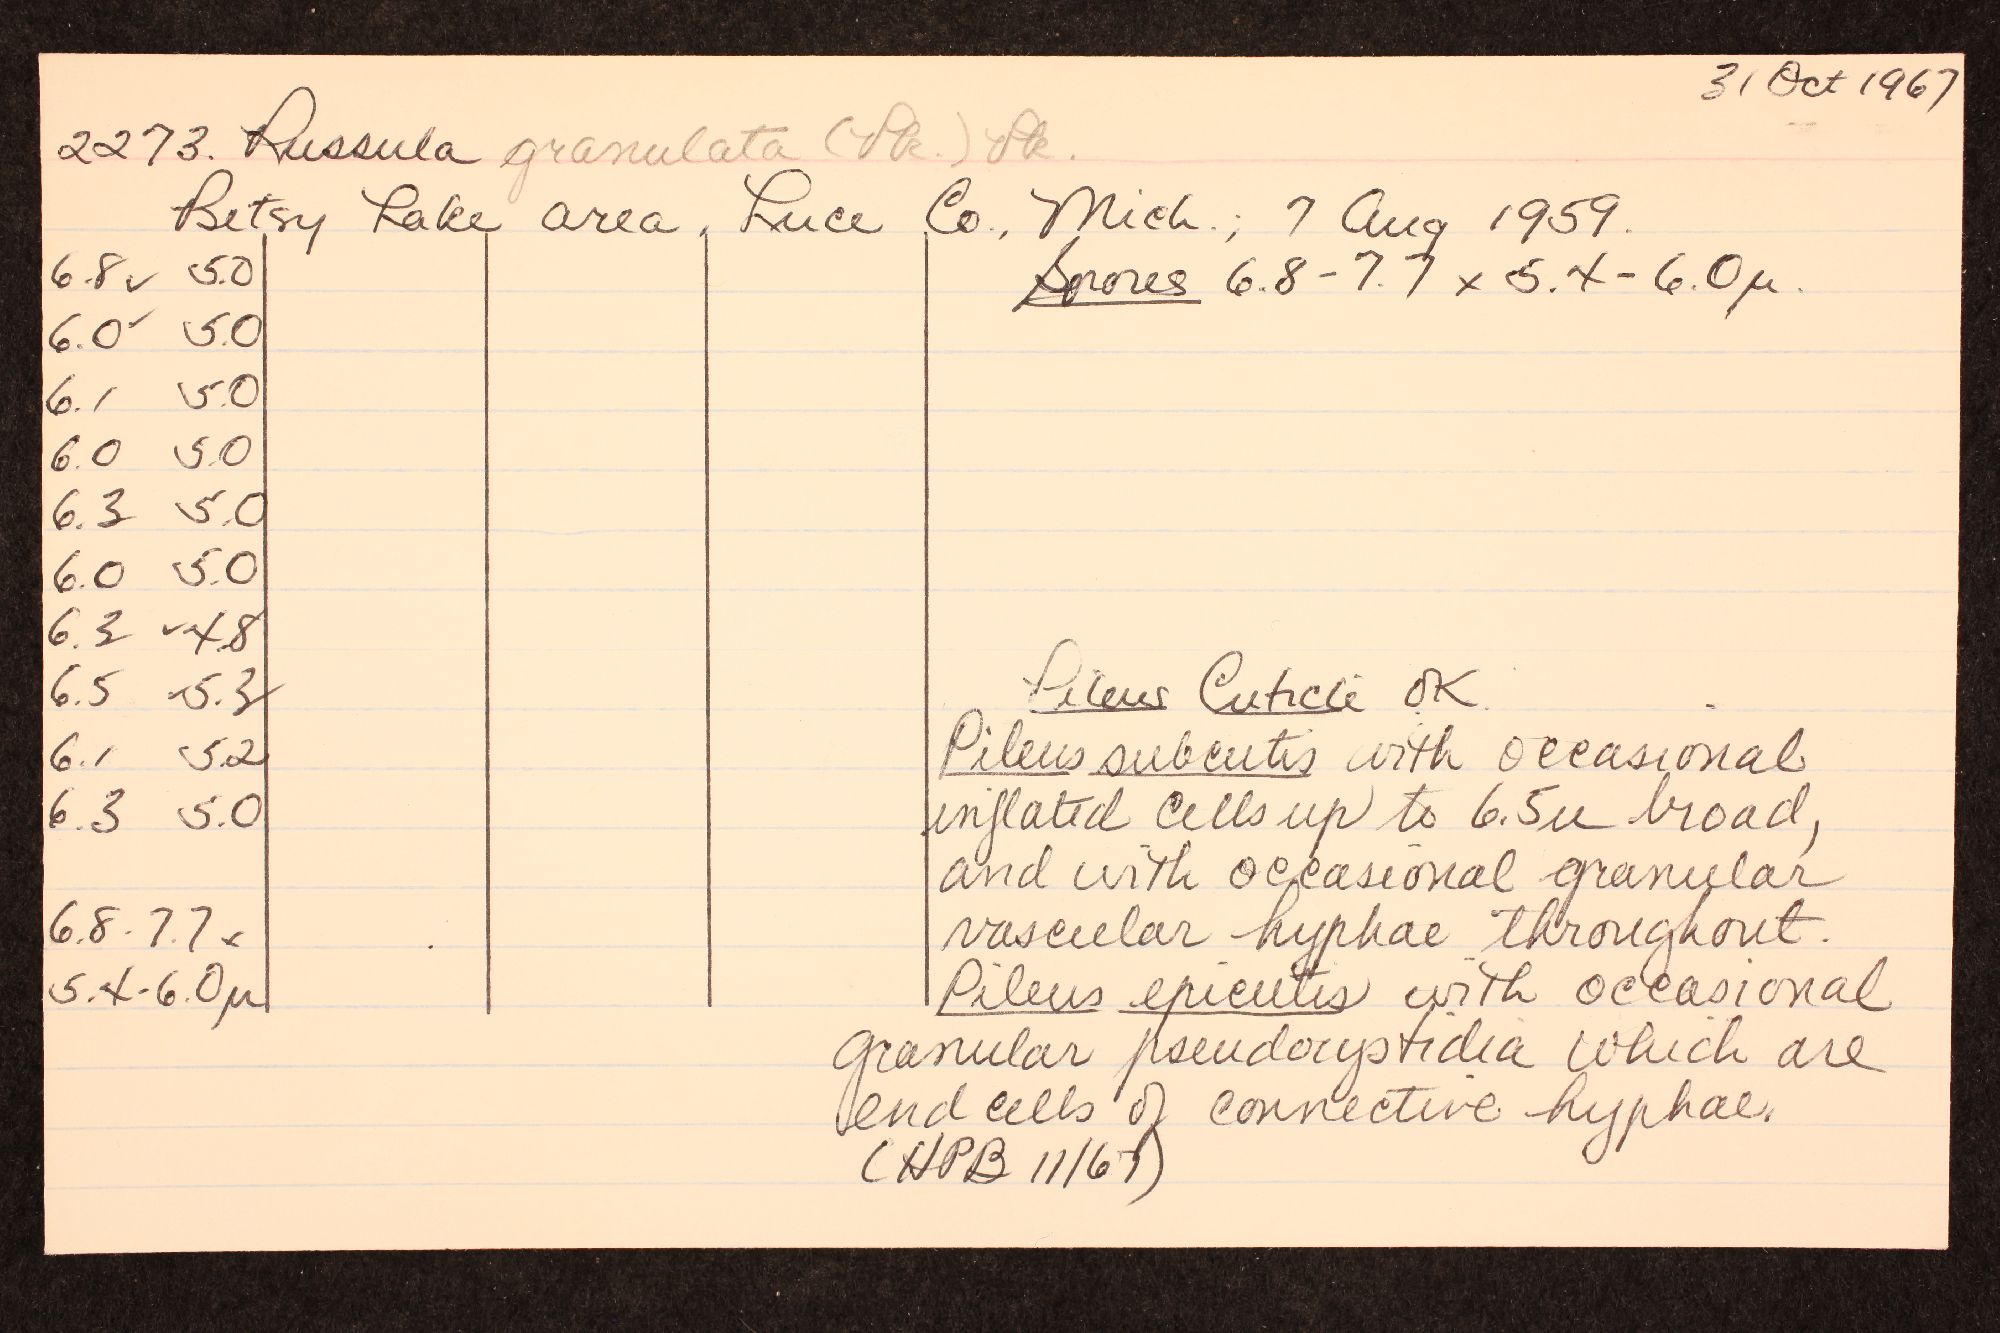 31 Oct 1967
2273. Russula granulata (Pk.) Pk.
Betsy Lake area, Luce Co., Mich.; 7 Aug 1959.
Spores 6.8-7.7 x 5.4-6.0µ.
6.8✓ 5.0
6.0✓ 5.0
6.1 5.0
6.0 5.0
6.3 5.0
6.0 5.0
6.3 ✓4.8
6.5 5.3✓
6.1 5.2
6.3 5.0
6.8-7.7 x
5.4-6.0µ
Pileus Cuticle OK.
Pileus subcutis with occasional
inflated cells up to 6.5u broad,
and with occasional granular
vascular hyphae throughout.
Pileus epicutis with occasional
granular pseudocystidia which are
end cells of connective hyphae.
(HPB 11/67)